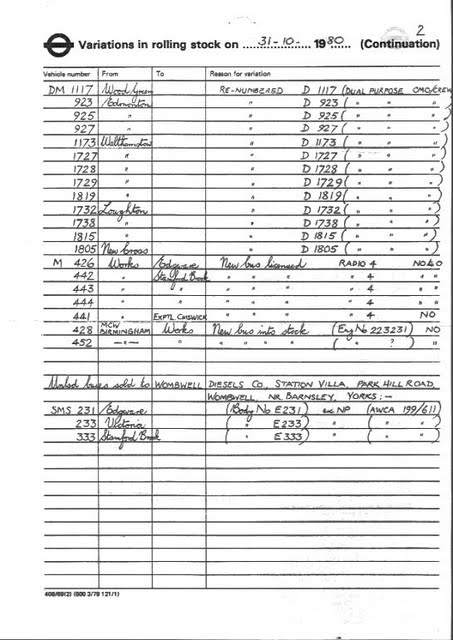 2
Variations in rolling stock on 31-10- 1980 (Continuation)
Vehicle number From To Reason for variation
DM 1117 Wood Green RE-NUMBERED D 1117 (DUAL PURPOSE OMO/CREW)
923 Edmonton " D 923 ( " " " )
925 " " D 925 ( " " " )
927 " " D 927 ( " " " )
1173 Walthamstow " D 1173 ( " " " )
1727 " " D 1727 ( " " " )
1728 " " D 1728 ( " " " )
1729 " " D 1729 ( " " " )
1819 " " D 1819 ( " " " )
1732 Loughton " D 1732 ( " " " )
1738 " " D 1738 ( " " " )
1815 " " D 1815 ( " " " )
1805 New Cross " D 1805 ( " " " )
M 426 Works Edgware New bus licensed RADIO 4
442 " Stamford Brook " " " " 4 "
443 " " " " " " 4 "
444 " " " " " " 4 "
441 " EXPTL. CHISWICK " " " " 4 NO
428 MCW BIRMINGHAM Works New bus into stock (Eng No 223231) NO
452 —"— " " " " " ( " ? ) "
Listed buses sold to WOMBWELL DIESELS CO., STATION VILLA, PARK HILL ROAD,
WOMBWELL, NR BARNSLEY, YORKS:-
SMS 231 Edgware (Body No E231) ex NP (AWCA 199/611)
233 Victoria ( " E233) " ( " " )
333 Stamford Brook ( " E333) " ( " " )
409/89(2) (500 3/79 121/1)